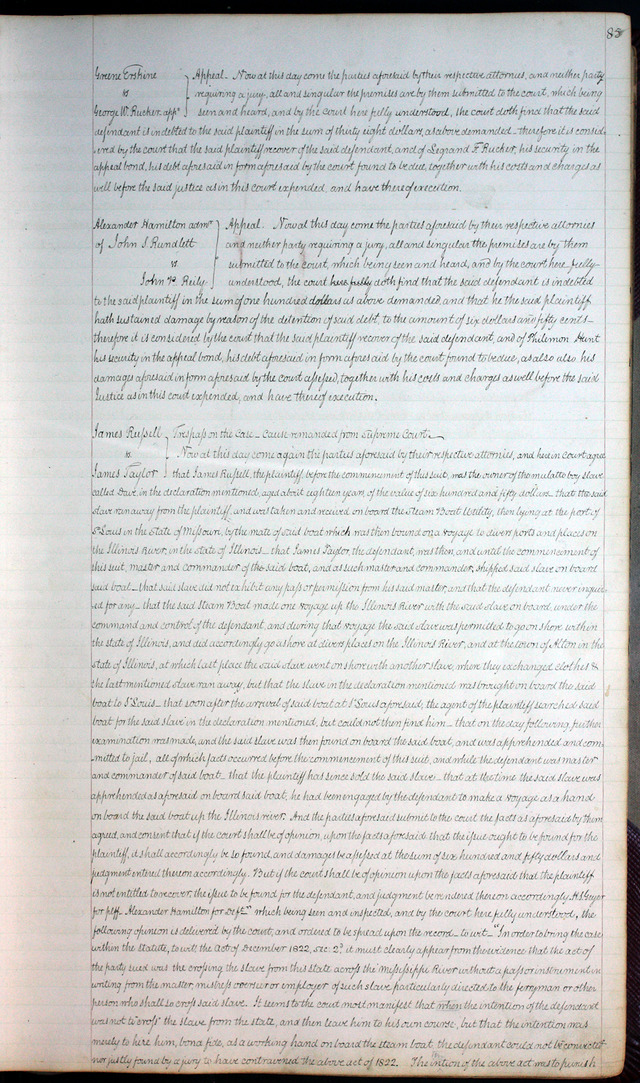 85
Greene Erskine } Appeal. Now at this day come the parties aforesaid by their respective attornies, and neither party
vs requiring a jury, all and singular the premises are by them submitted to the court, which being
George W. Rucker, appt seen and heard, and by the court here fully understood, the court doth find that the said
defendant is indebted to the said plaintiff in the sum of thirty eight dollars, as above demanded — therefore it is consid
ered by the court that the said plaintiff recover of the said defendant, and of Legrand F. Rucker, his security in the
appeal bond, his debt aforesaid in form aforesaid by the court found to be due, together with his costs and charges as
well before the said justice as in this court expended, and have thereof execution.
Alexander Hamilton admr } Appeal. Now at this day come the parties aforesaid by their respective attornies
of John S. Rundlett and neither party requiring a jury, all and singular the premises are by them
vs submitted to the court, which being seen and heard, and by the court here fully
John P. Reily understood, the court here fully doth find that the said defendant is indebted
to the said plaintiff in the sum of one hundred dollars as above demanded, and that he the said plaintiff
hath sustained damage by reason of the detention of said debt, to the amount of six dollars and fifty cents —
therefore it is considered by the court that the said plaintiff recover of the said defendant, and of Philemon Hunt
his security in the appeal bond, his debt aforesaid in form aforesaid by the court found to be due, as also also his
damages aforesaid in form aforesaid by the court assessed, together with his costs and charges as well before the said
Justice as in this court expended, and have thereof execution.
James Russell } Trespass on the Case — Cause remanded from Supreme Court —
vs Now at this day come again the parties aforesaid by their respective attornies, and here in court agree
James Taylor that James Russell, the plaintiff, before the commencement of this suit, was the owner of the mulatto boy slave
called Dave, in the declaration mentioned, aged about eighteen years, of the value of six hundred and fifty dollars — that the said
slave ran away from the plaintiff, and was taken and received on board the Steam Boat Utility, then lying at the port of
St Louis in the State of Missouri, by the mate of said boat which was then bound on a voyage to divers ports and places on
the Illinois River, in the state of Illinois — that James Taylor the defendant, was then, and until the commencement of
this suit, master and commander of the said boat, and as such master and commander, shipped said slave on board
said boat — that said slave did not exhibit any pass or permission from his said master, and that the defendant never inquir
ed for any — that the said Steam Boat made one voyage up the Illinois River with the said slave on board, under the
command and control of the defendant, and during that voyage the said slave was permitted to go on shore within
the state of Illinois, and did accordingly go ashore at divers places on the Illinois River, and at the town of Alton in the
state of Illinois, at which last place the said slave went on shore with another slave, where they exchanged clothes &
the last mentioned slave ran away, but that the slave in the declaration mentioned was brought on board the said
boat to St Louis — that soon after the arrival of said boat at St Louis aforesaid, the agent of the plaintiff searched said
boat for the said slave in the declaration mentioned, but could not then find him — that on the day following, further
examination was made, and the said slave was then found on board the said boat, and was apprehended and com
mitted to jail, all of which facts occurred before the commencement of this suit, and while the defendant was master
and commander of said boat — that the plaintiff has since sold the said slave — that at the time the said slave was
apprehended as aforesaid on board said boat, he had been engaged by the defendant to make a voyage as a hand
on board the said boat up the Illinois river. And the parties aforesaid submit to the court the facts as aforesaid by them
agreed, and consent that if the court shall be of opinion, upon the facts aforesaid that the issue ought to be found for the
plaintiff, it shall accordingly be so found, and damages be assessed at the sum of six hundred and fifty dollars and
judgment entered thereon accordingly. But if the court shall be of opinion upon the facts aforesaid that the plaintiff
is not entitled to recover, the issue to be found for the defendant, and judgment be rendered thereon accordingly. H S Geyer
for plff. Alexander Hamilton for Deft" which being seen and inspected, and by the court here fully understood, the
following opinion is delivered by the court, and ordered to be spread upon the record — to wit — "In order to bring the case
within the statute, to wit, the Act of December 1822, sec: 2d it must clearly appear from the evidence that the act of
the party sued was the crossing the slave from this state across the Mississippi River without a pass or instrument in
writing from the master, mistress overseer or employer of such slave particularly directed to the ferryman or other
person who shall so cross said slave. It seems to the court most manifest that when the intention of the defendant
was not to "cross" the slave from the state, and then leave him to his own course, but that the intention was
merely to hire him, bona fide, as a working hand on board the steam boat, the defendant could not be convicted
nor justly found by a jury to have contravened the above act of 1822. The intention of the above act was to punish